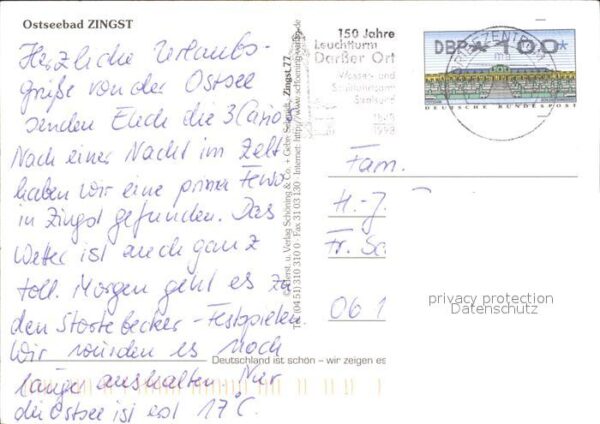 Ostseebad ZINGST
Herzliche Urlaubs-
grüße von der Ostsee
senden Euch die 3
Nach einer Nacht im Zelt
haben wir eine prima Fewo
in Zingst gefunden. Das
Wetter ist auch ganz
toll. Morgen geht es zu
den Störtebecker-Festspielen
Wir würden es noch
lange aushalten. Nur
die Ostsee ist erst 17°C.
Verlag Schöning & Co. + Gebr. Schmidt, Zingst 77
Tel. (04 51) 310 310 0 · Fax 31 03 130 · Internet: http://www.schoening-verlag.de
Deutschland ist schön – wir zeigen es
150 Jahre
Leuchtturm
Darßer Ort
DBP 100
DEUTSCHE BUNDESPOST
BRIEFZENTRUM
Fam.
H.-J.
Fr. Sc
06 1
privacy protection
Datenschutz